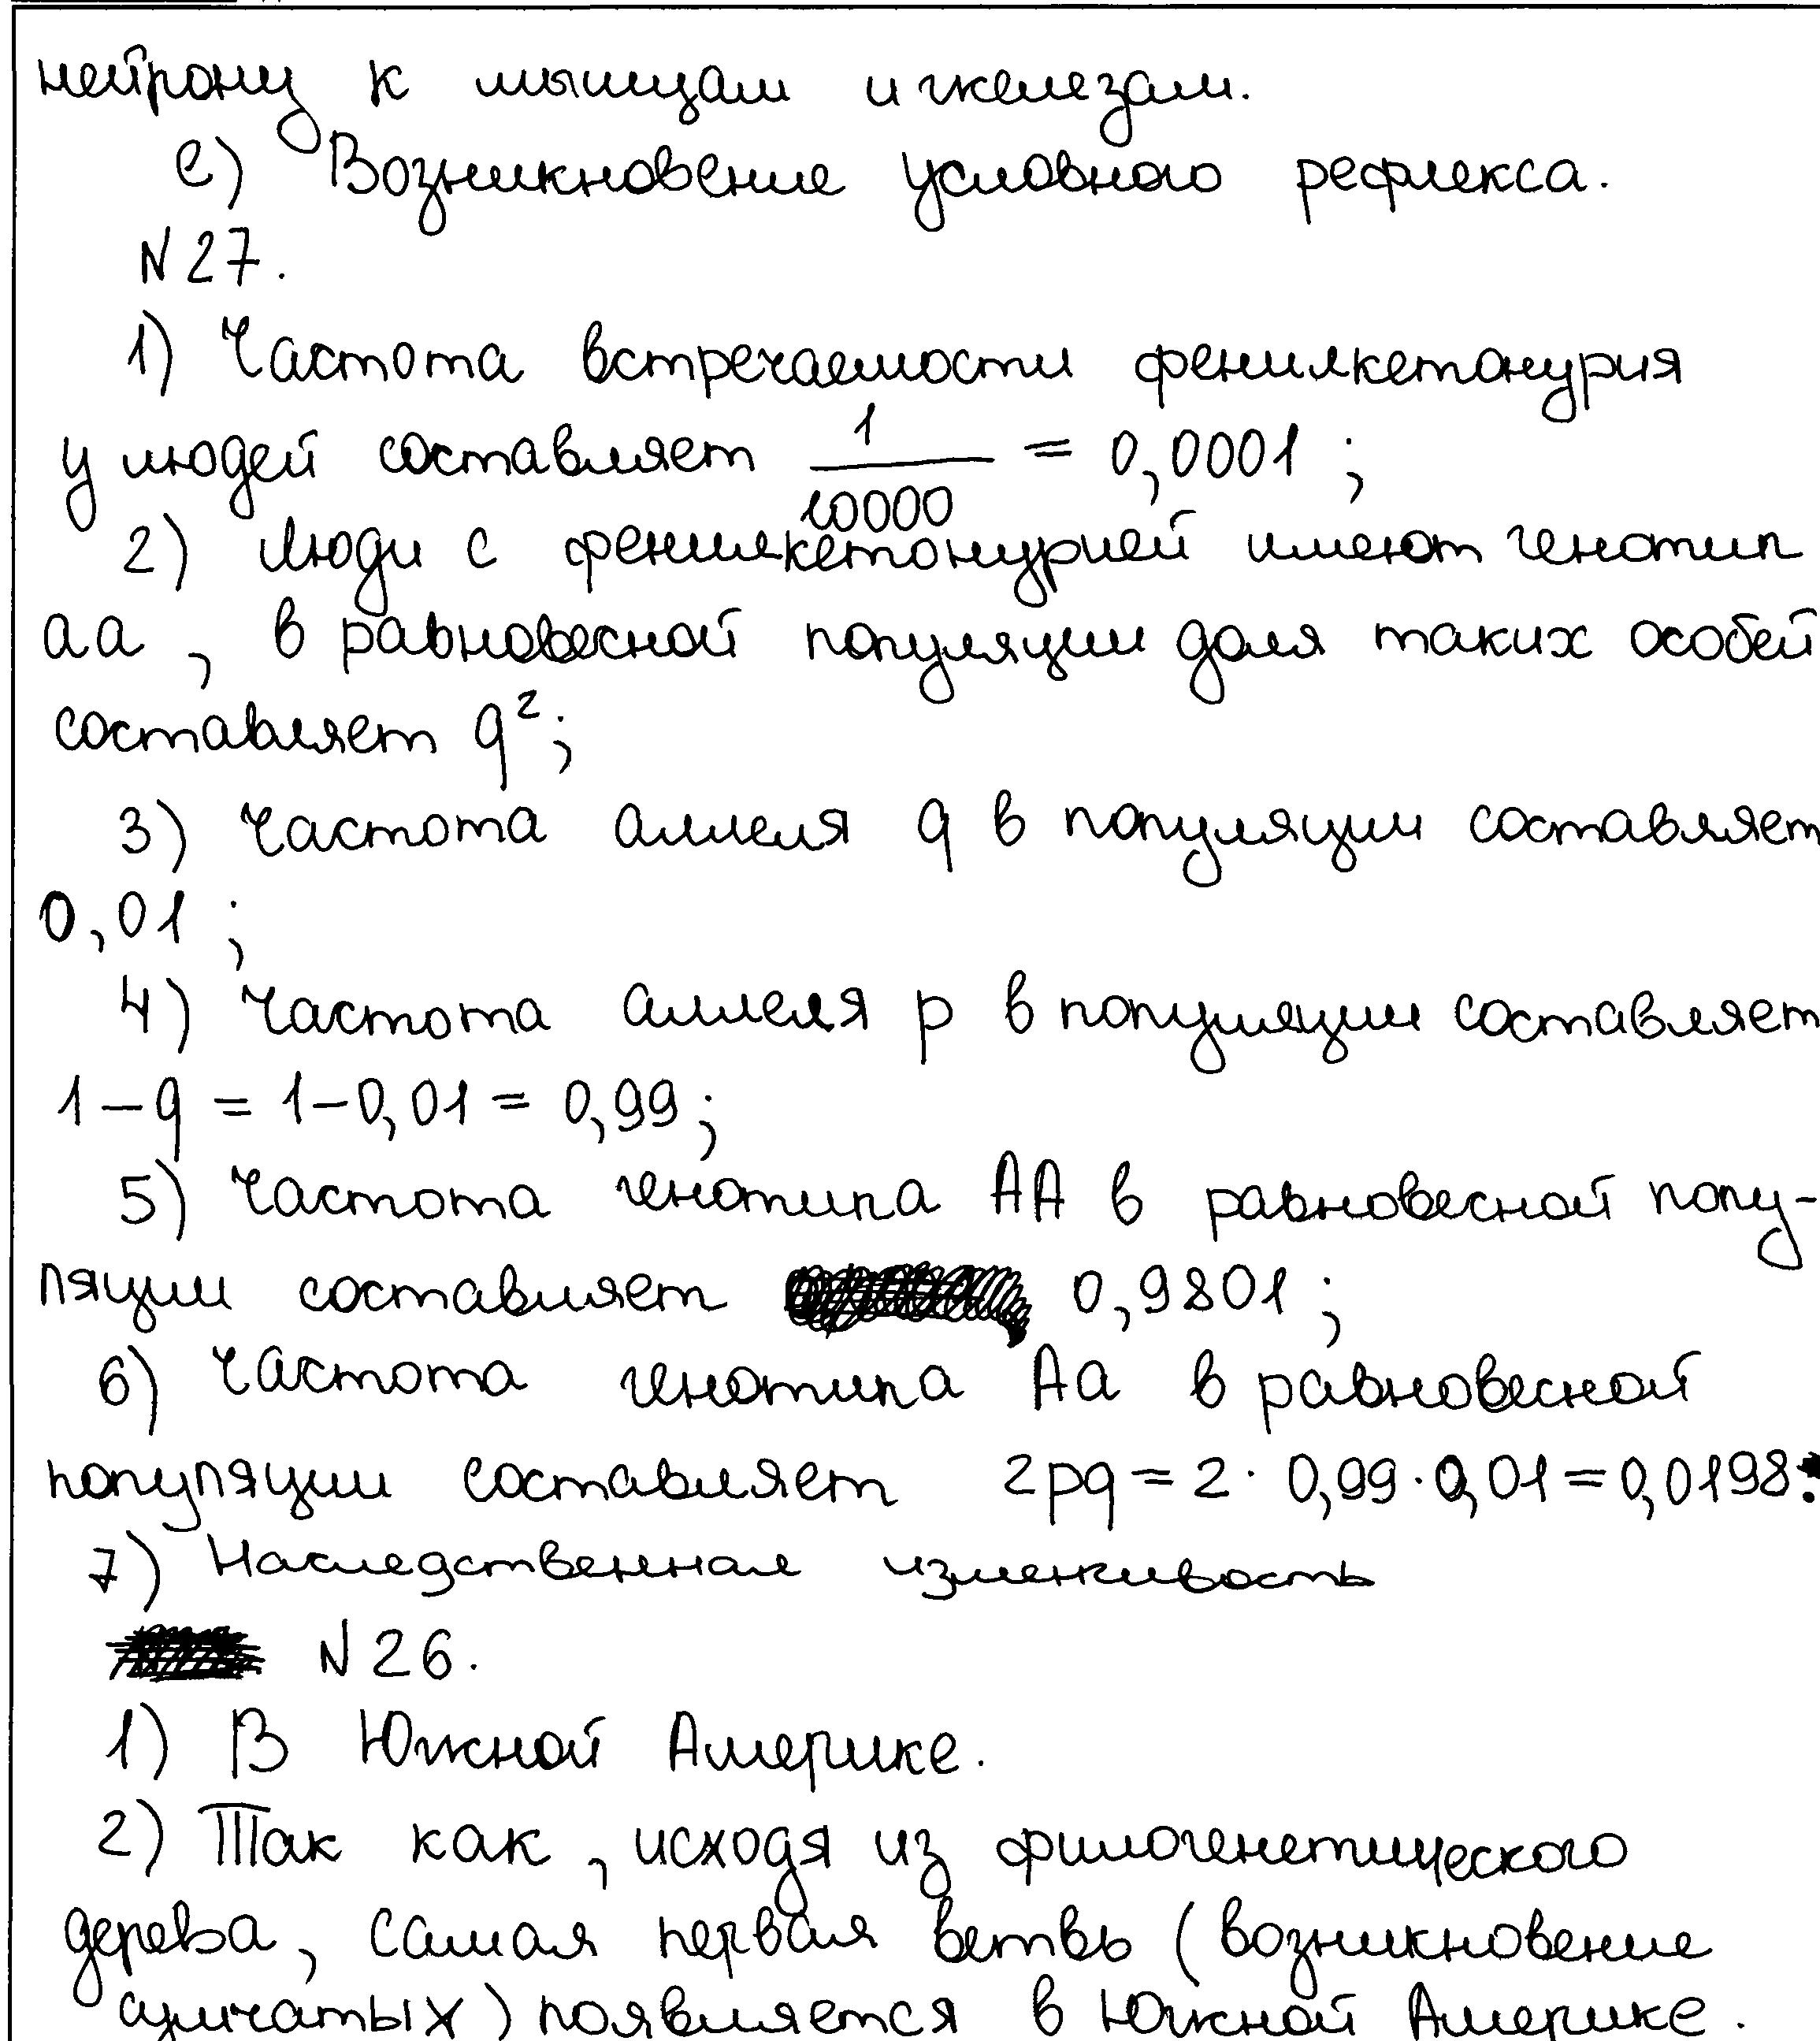 нейрону к мышцам и железам.
е) Возникновение условного рефлекса.
N27.
1) Частота встречаемости фенилкетонурия
у людей составляет 1/10000 = 0,0001 ;
2) Люди с фенилкетонурией имеют генотип
аа , в равновесной популяции доля таких особей
составляет q²;
3) Частота аллеля q в популяции составляет
0,01 ;
4) Частота аллеля p в популяции составляет
1–q = 1–0,01 = 0,99;
5) Частота генотипа АА в равновесной попу-
ляции составляет 0,9801 ;
6) Частота генотипа Аа в равновесной
популяции составляет 2pq = 2· 0,99·0,01 = 0,0198.
7) Наследственная изменчивость
N26.
1) В Южной Америке.
2) Так как , исходя из филогенетического
дерева, самая первая ветвь (возникновение
сумчатых) появляется в Южной Америке.